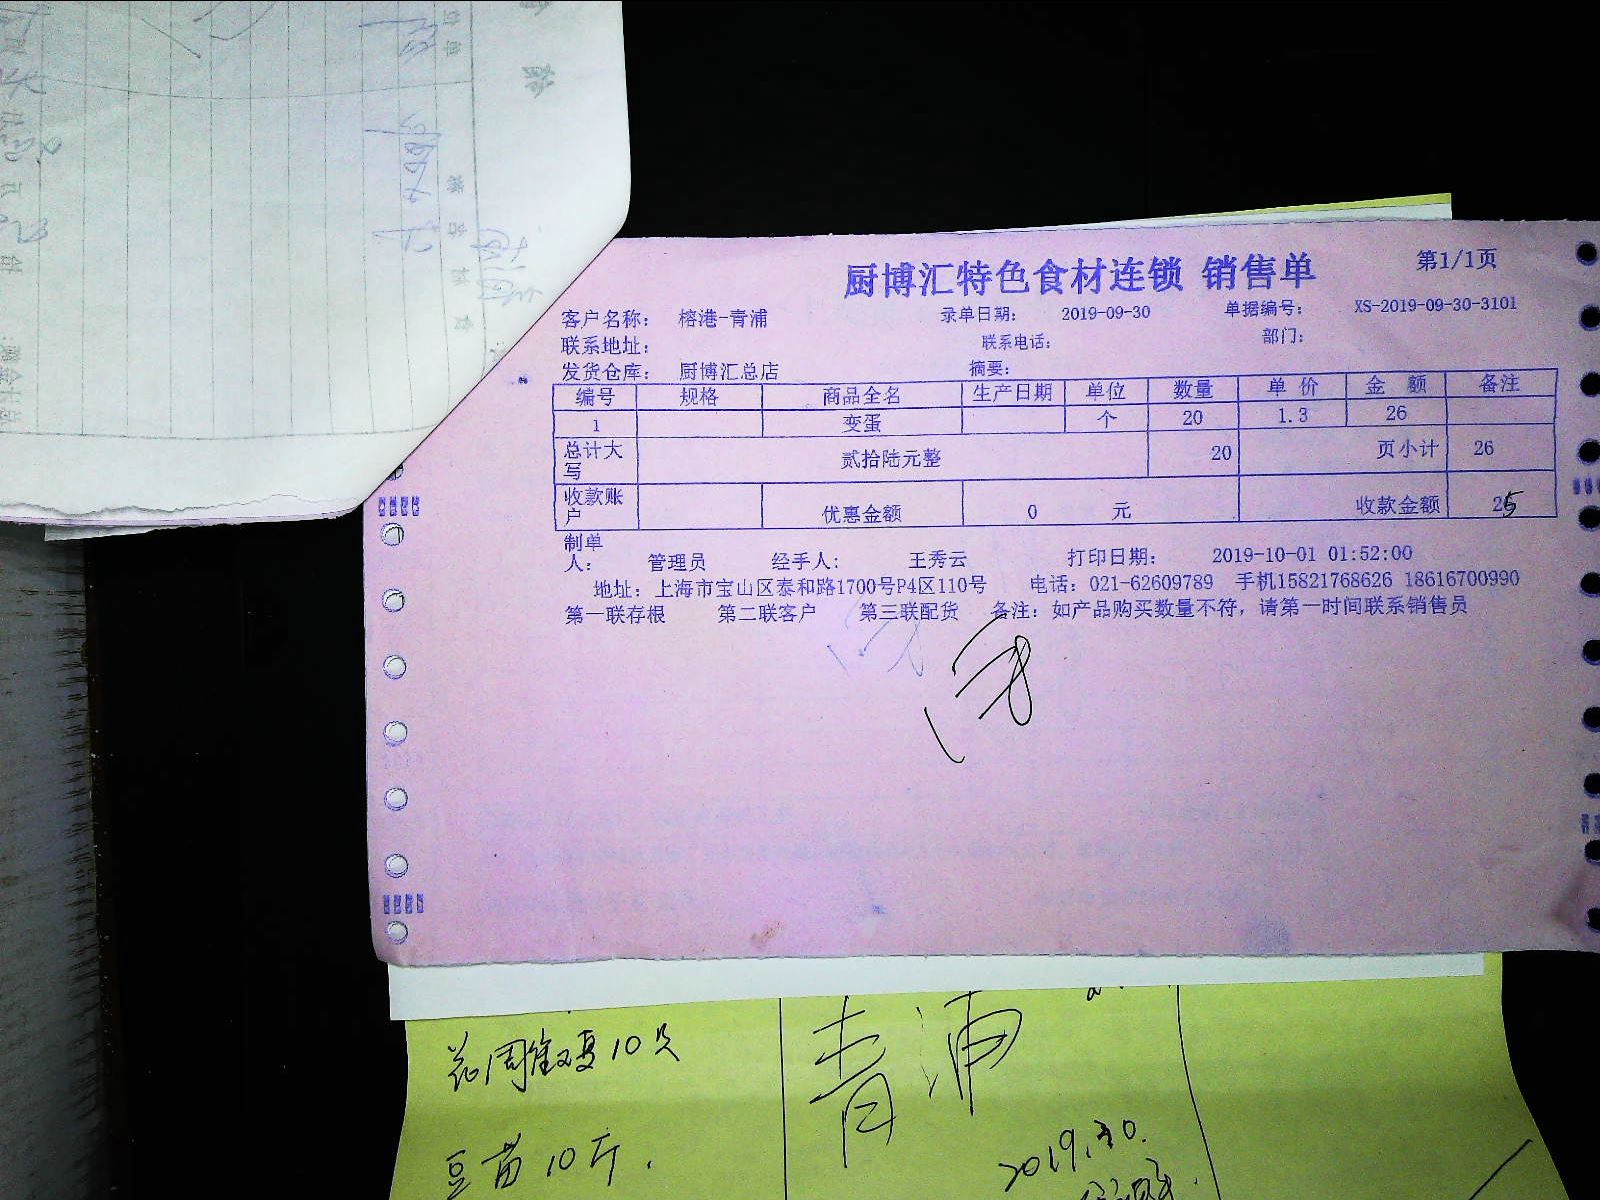 厨博汇特色食材连锁 销售单 第1/1页
客户名称： 榕港-青浦 录单日期： 2019-09-30 单据编号： XS-2019-09-30-3101
联系地址： 联系电话： 部门：
发货仓库： 厨博汇总店 摘要：
编号 规格 商品全名 生产日期 单位 数量 单价 金额 备注
1 变蛋 个 20 1.3 26
总计大写 贰拾陆元整 20 页小计 26
收款账户 优惠金额 0 元 收款金额 25
制单人： 管理员 经手人： 王秀云 打印日期： 2019-10-01 01:52:00
地址：上海市宝山区泰和路1700号P4区110号 电话：021-62609789 手机15821768626 18616700990
第一联存根 第二联客户 第三联配货 备注：如产品购买数量不符，请第一时间联系销售员
10只
青浦
豆苗10斤.